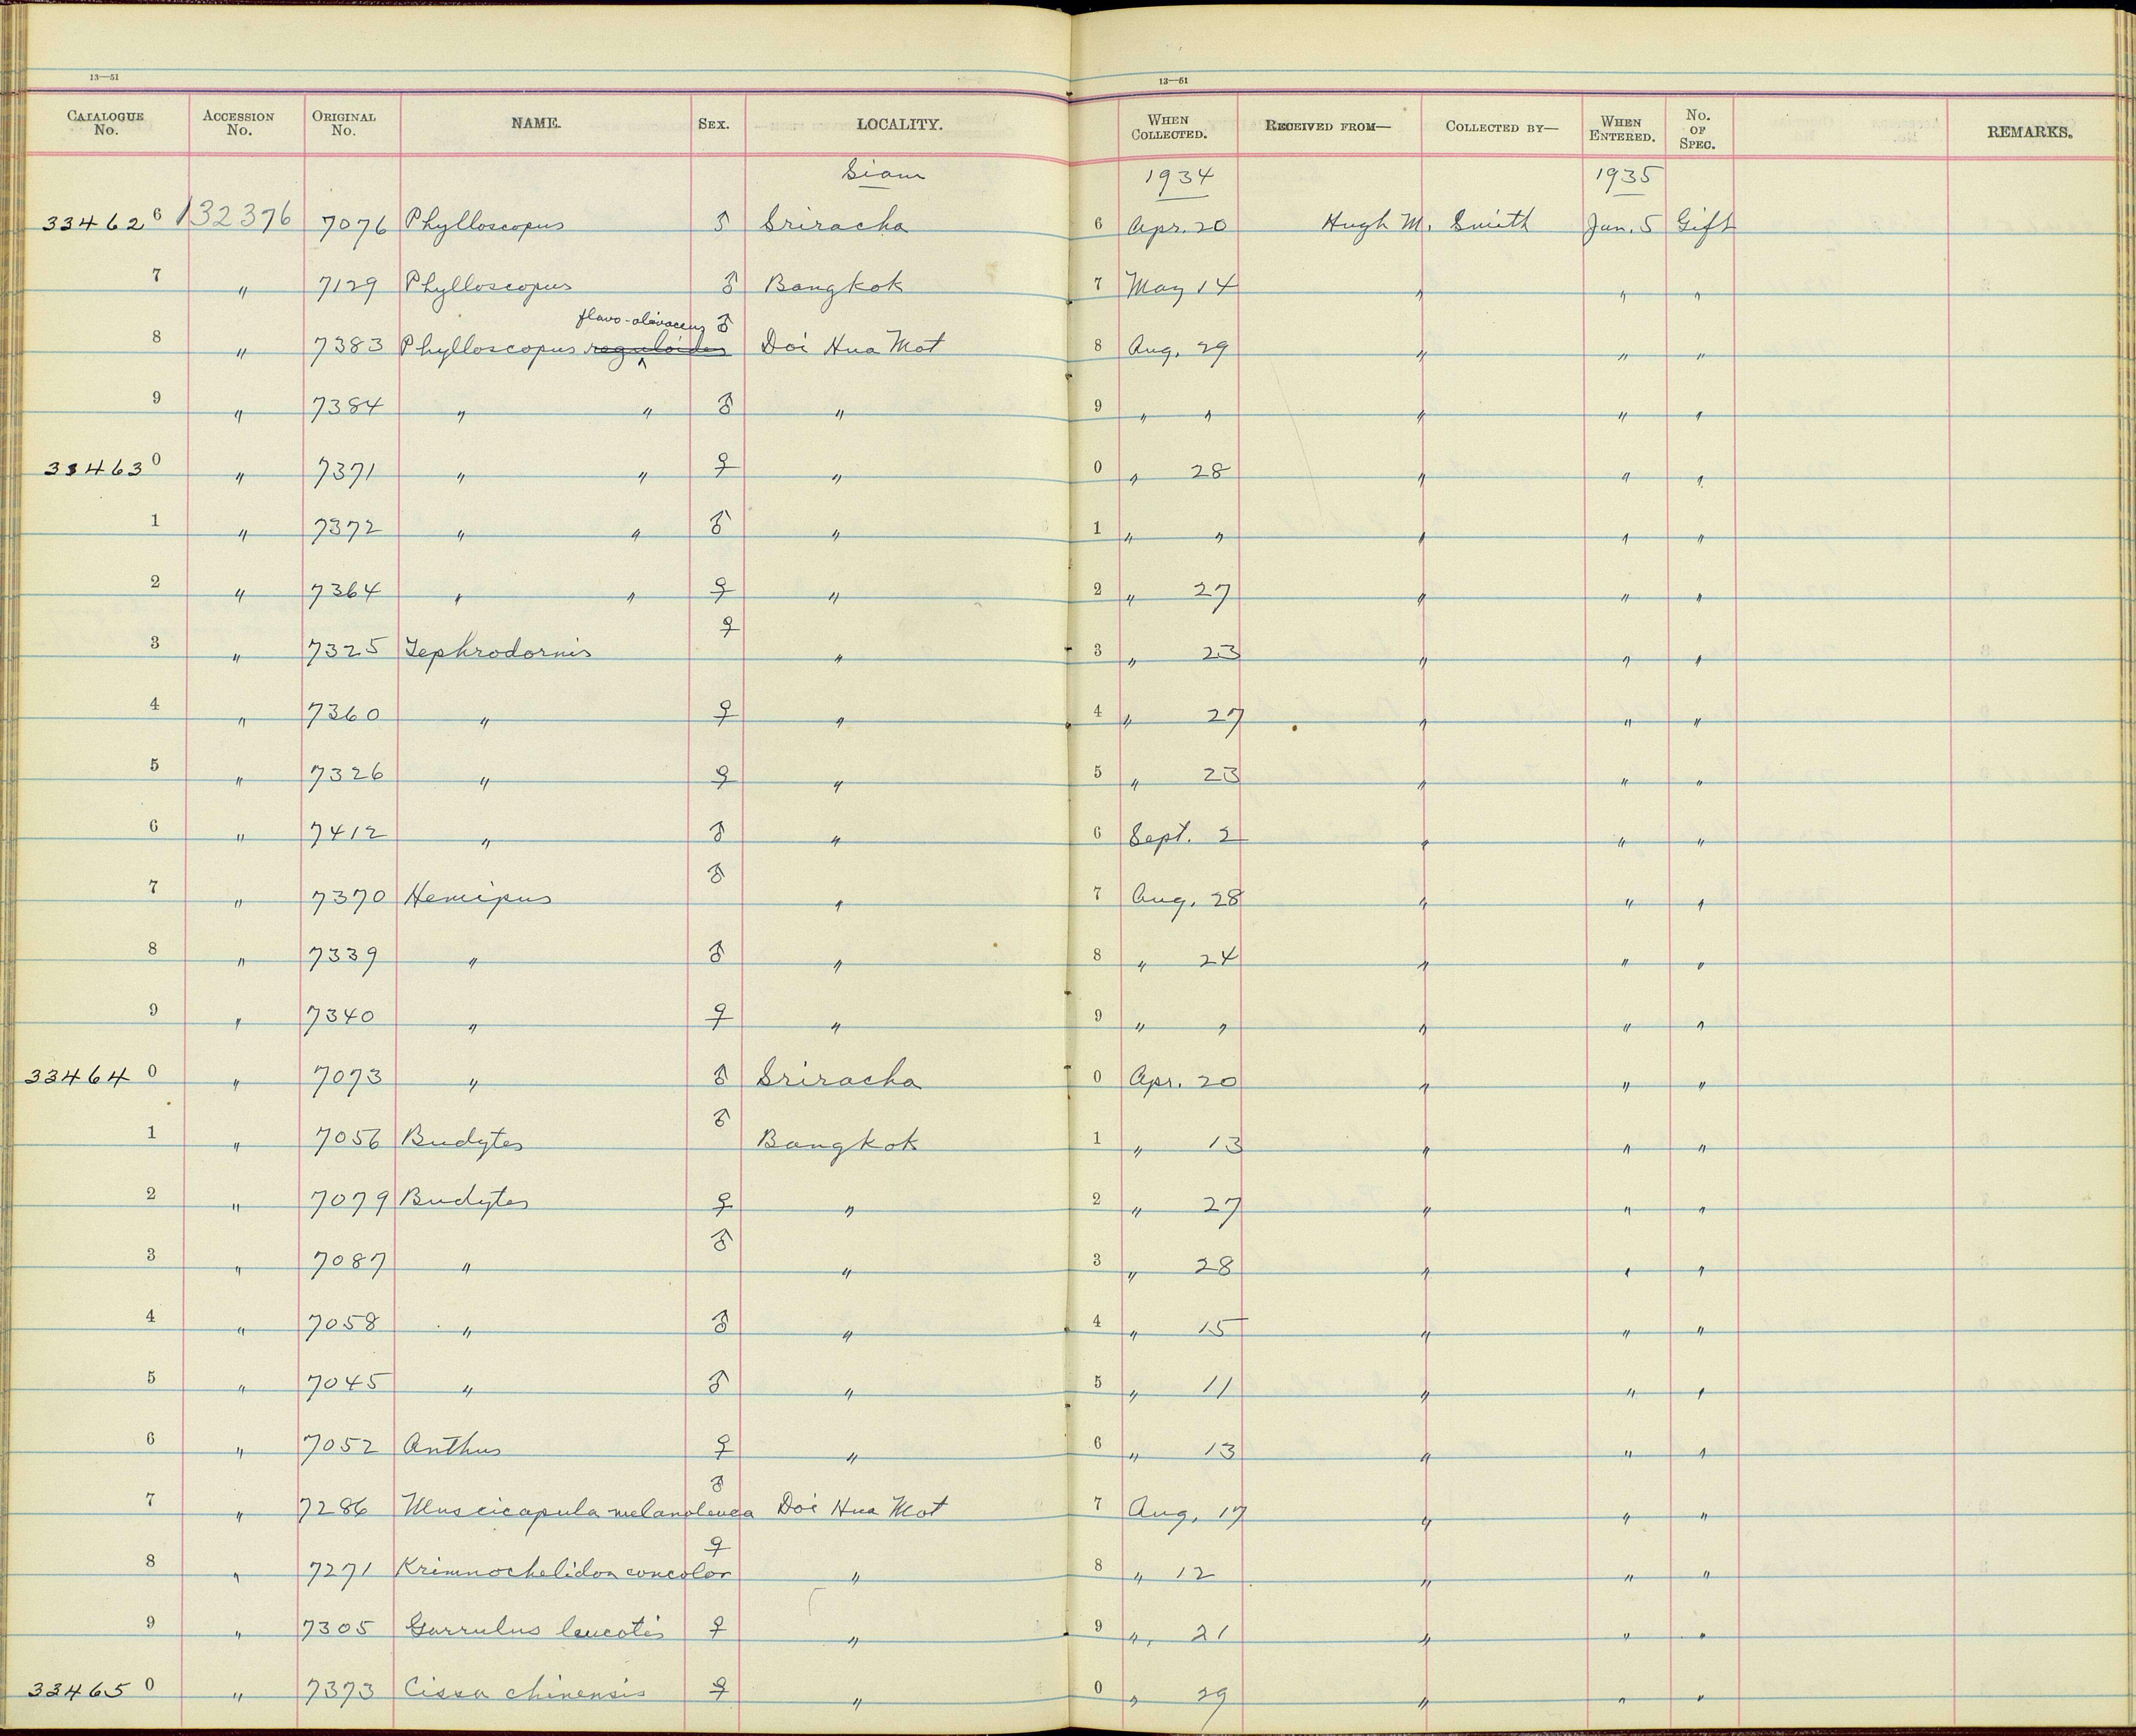 13—51 13—51
CATALOGUE No. ACCESSION No. ORIGINAL No. NAME. SEX. LOCALITY. WHEN COLLECTED. RECEIVED FROM— COLLECTED BY— WHEN ENTERED. No. OF SPEC. REMARKS.
Siam 1934 1935
334626 132376 7076 Phylloscopus ♂ Sriracha 6 Apr. 20 Hugh M. Smith Jan. 5 Gift
7 " 7129 Phylloscopus ♂ Bangkok 7 May 14 " " "
flavo-olivaceus
8 " 7383 Phylloscopus reguloides ♂ Doi Hua Mot 8 Aug. 29 " " "
9 " 7384 " " ♂ " 9 " " " " "
334630 " 7371 " " ♀ " 0 " 28 " " "
1 " 7372 " " ♂ " 1 " " " " "
2 " 7364 " " ♀ " 2 " 27 " " "
3 " 7325 Tephrodornis ♀ " 3 " 23 " " "
4 " 7360 " ♀ " 4 " 27 " " "
5 " 7326 " ♀ " 5 " 23 " " "
6 " 7412 " ♂ " 6 Sept. 2 " " "
7 " 7370 Hemipus ♂ " 7 Aug. 28 " " "
8 " 7339 " ♂ " 8 " 24 " " "
9 " 7340 " ♀ " 9 " " " " "
334640 " 7073 " ♂ Sriracha 0 Apr. 20 " " "
1 " 7056 Budytes ♂ Bangkok 1 " 13 " " "
2 " 7079 Budytes ♀ " 2 " 27 " " "
3 " 7087 " ♂ " 3 " 28 " " "
4 " 7058 " ♂ " 4 " 15 " " "
5 " 7045 " ♂ " 5 " 11 " " "
6 " 7052 Anthus ♀ " 6 " 13 " " "
7 " 7286 Muscicapula melanoleuca ♂ Doi Hua Mot 7 Aug. 17 " " "
8 " 7271 Krimnochelidon concolor ♀ " 8 " 12 " " "
9 " 7305 Garrulus leucotis ♀ " 9 " 21 " " "
334650 " 7373 Cissa chinensis ♀ " 0 " 29 " " "